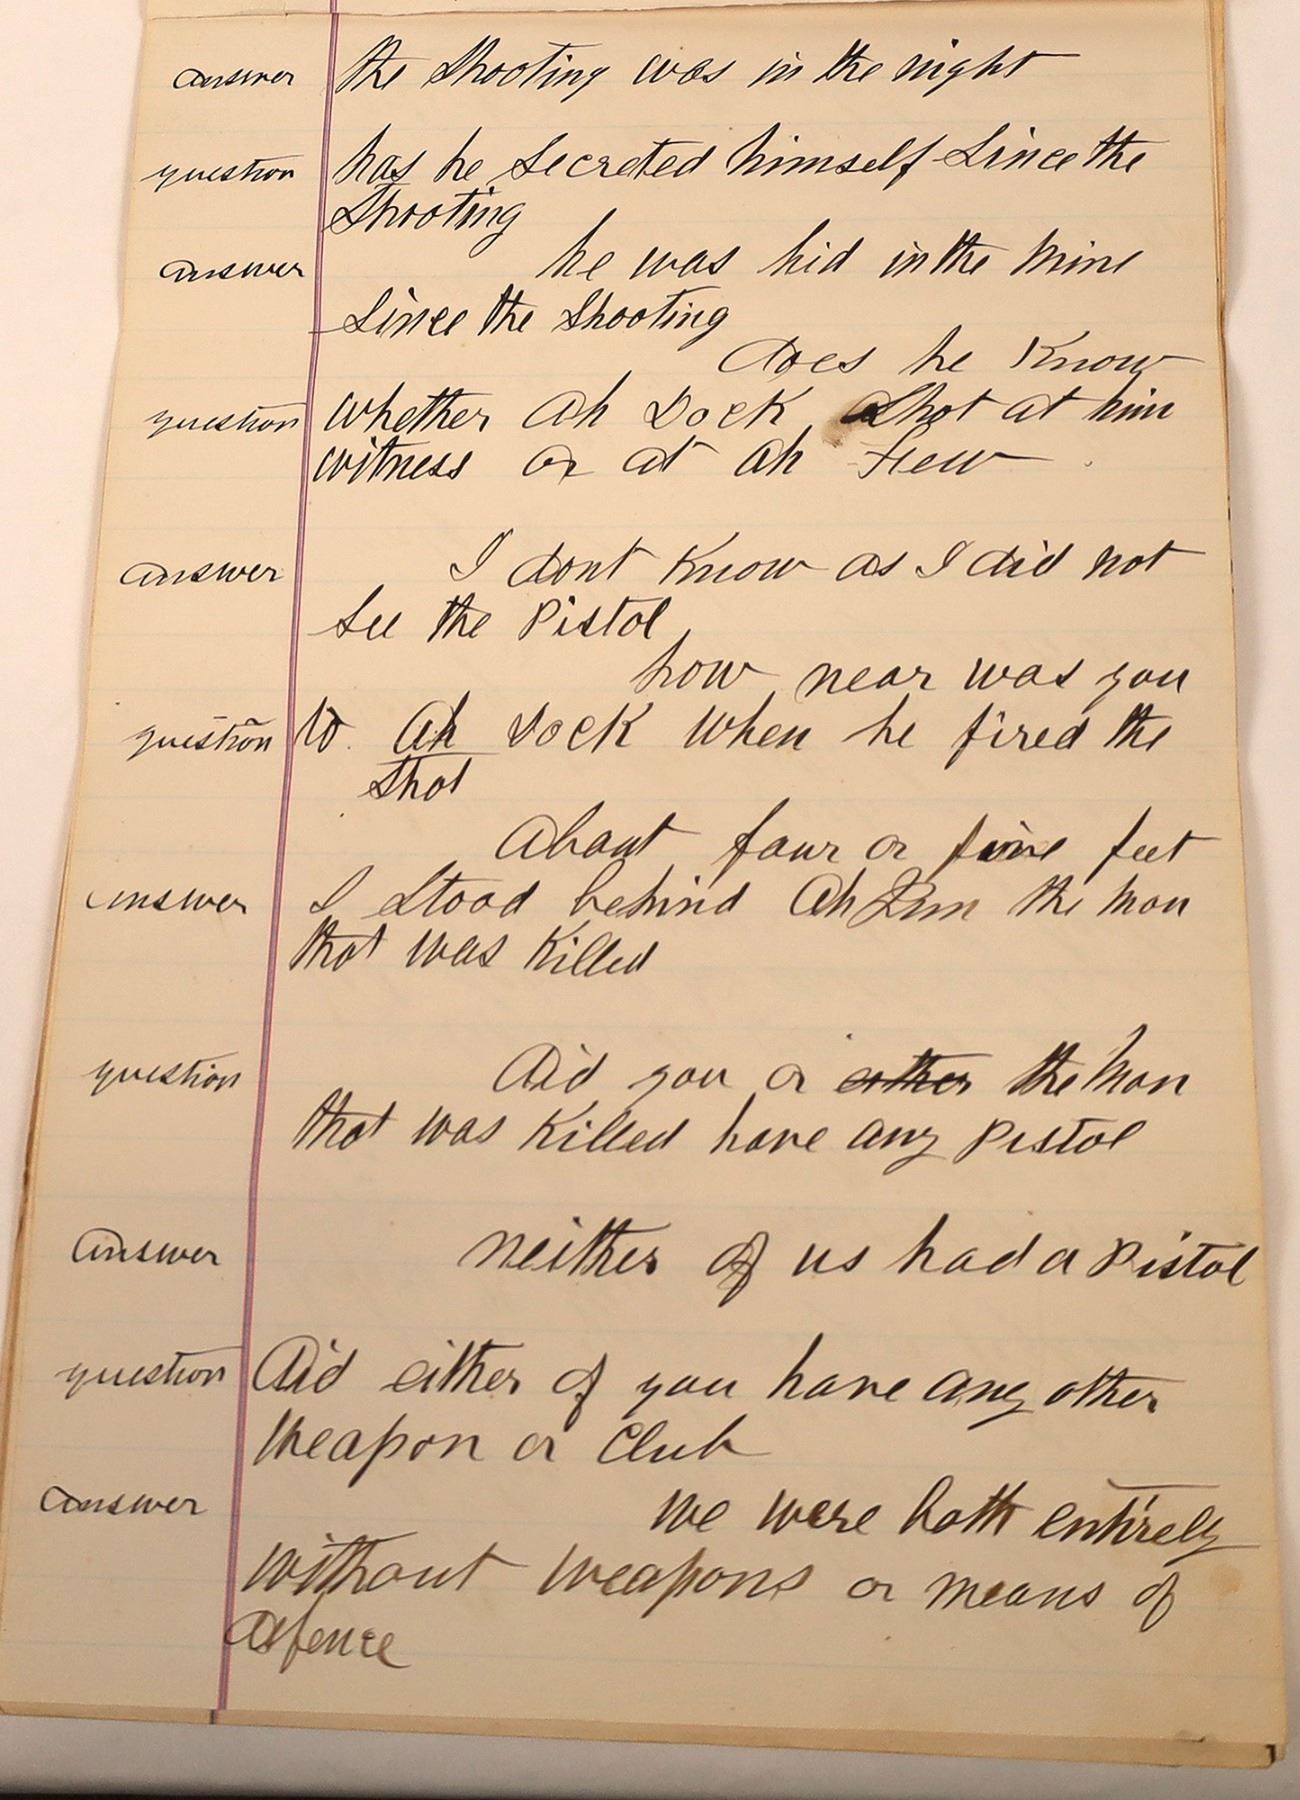 answer the shooting was in the night
question has he secreted himself since the
shooting
answer he was hid in the mine
since the shooting
does he know
question whether Ah Dock shot at him
witness or at Ah
answer I dont know as I did not
see the Pistol
how near was you
question to Ah Dock when he fired the
shot
About four or five feet
answer I stood behind Ah the man
that was killed
question Did you or either the man
that was killed have any Pistol
answer neither of us had a Pistol
question Did either of you have any other
weapon or club
answer we were both entirely
without weapons or means of
defence